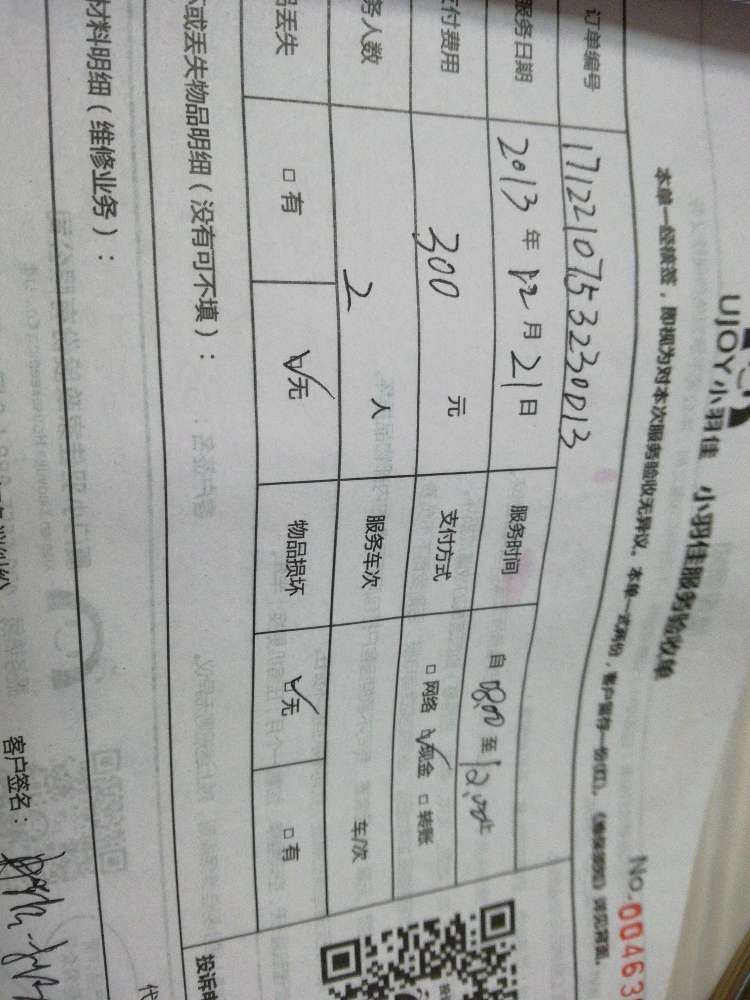 UJOY小羽佳 小羽佳服务验收单
No.00463
本单一经填签,即视为对本次服务验收无异议。本单一式两份,客户留存一份(红)。《维保须知》详见背面。
订单编号 171221075323230013
服务日期 2013 年 12 月 21 日 服务时间 自 08:00 至 12:00止
付费用 300 元 支付方式 □ 网络 ☑ 现金 □ 转账
务人数 2 人 服务车次 车/次
品丢失 □ 有 ☑ 无 物品损坏 ☑ 无 □ 有
或丢失物品明细(没有可不填):
材料明细(维修业务):
投诉电
客户签名:
代